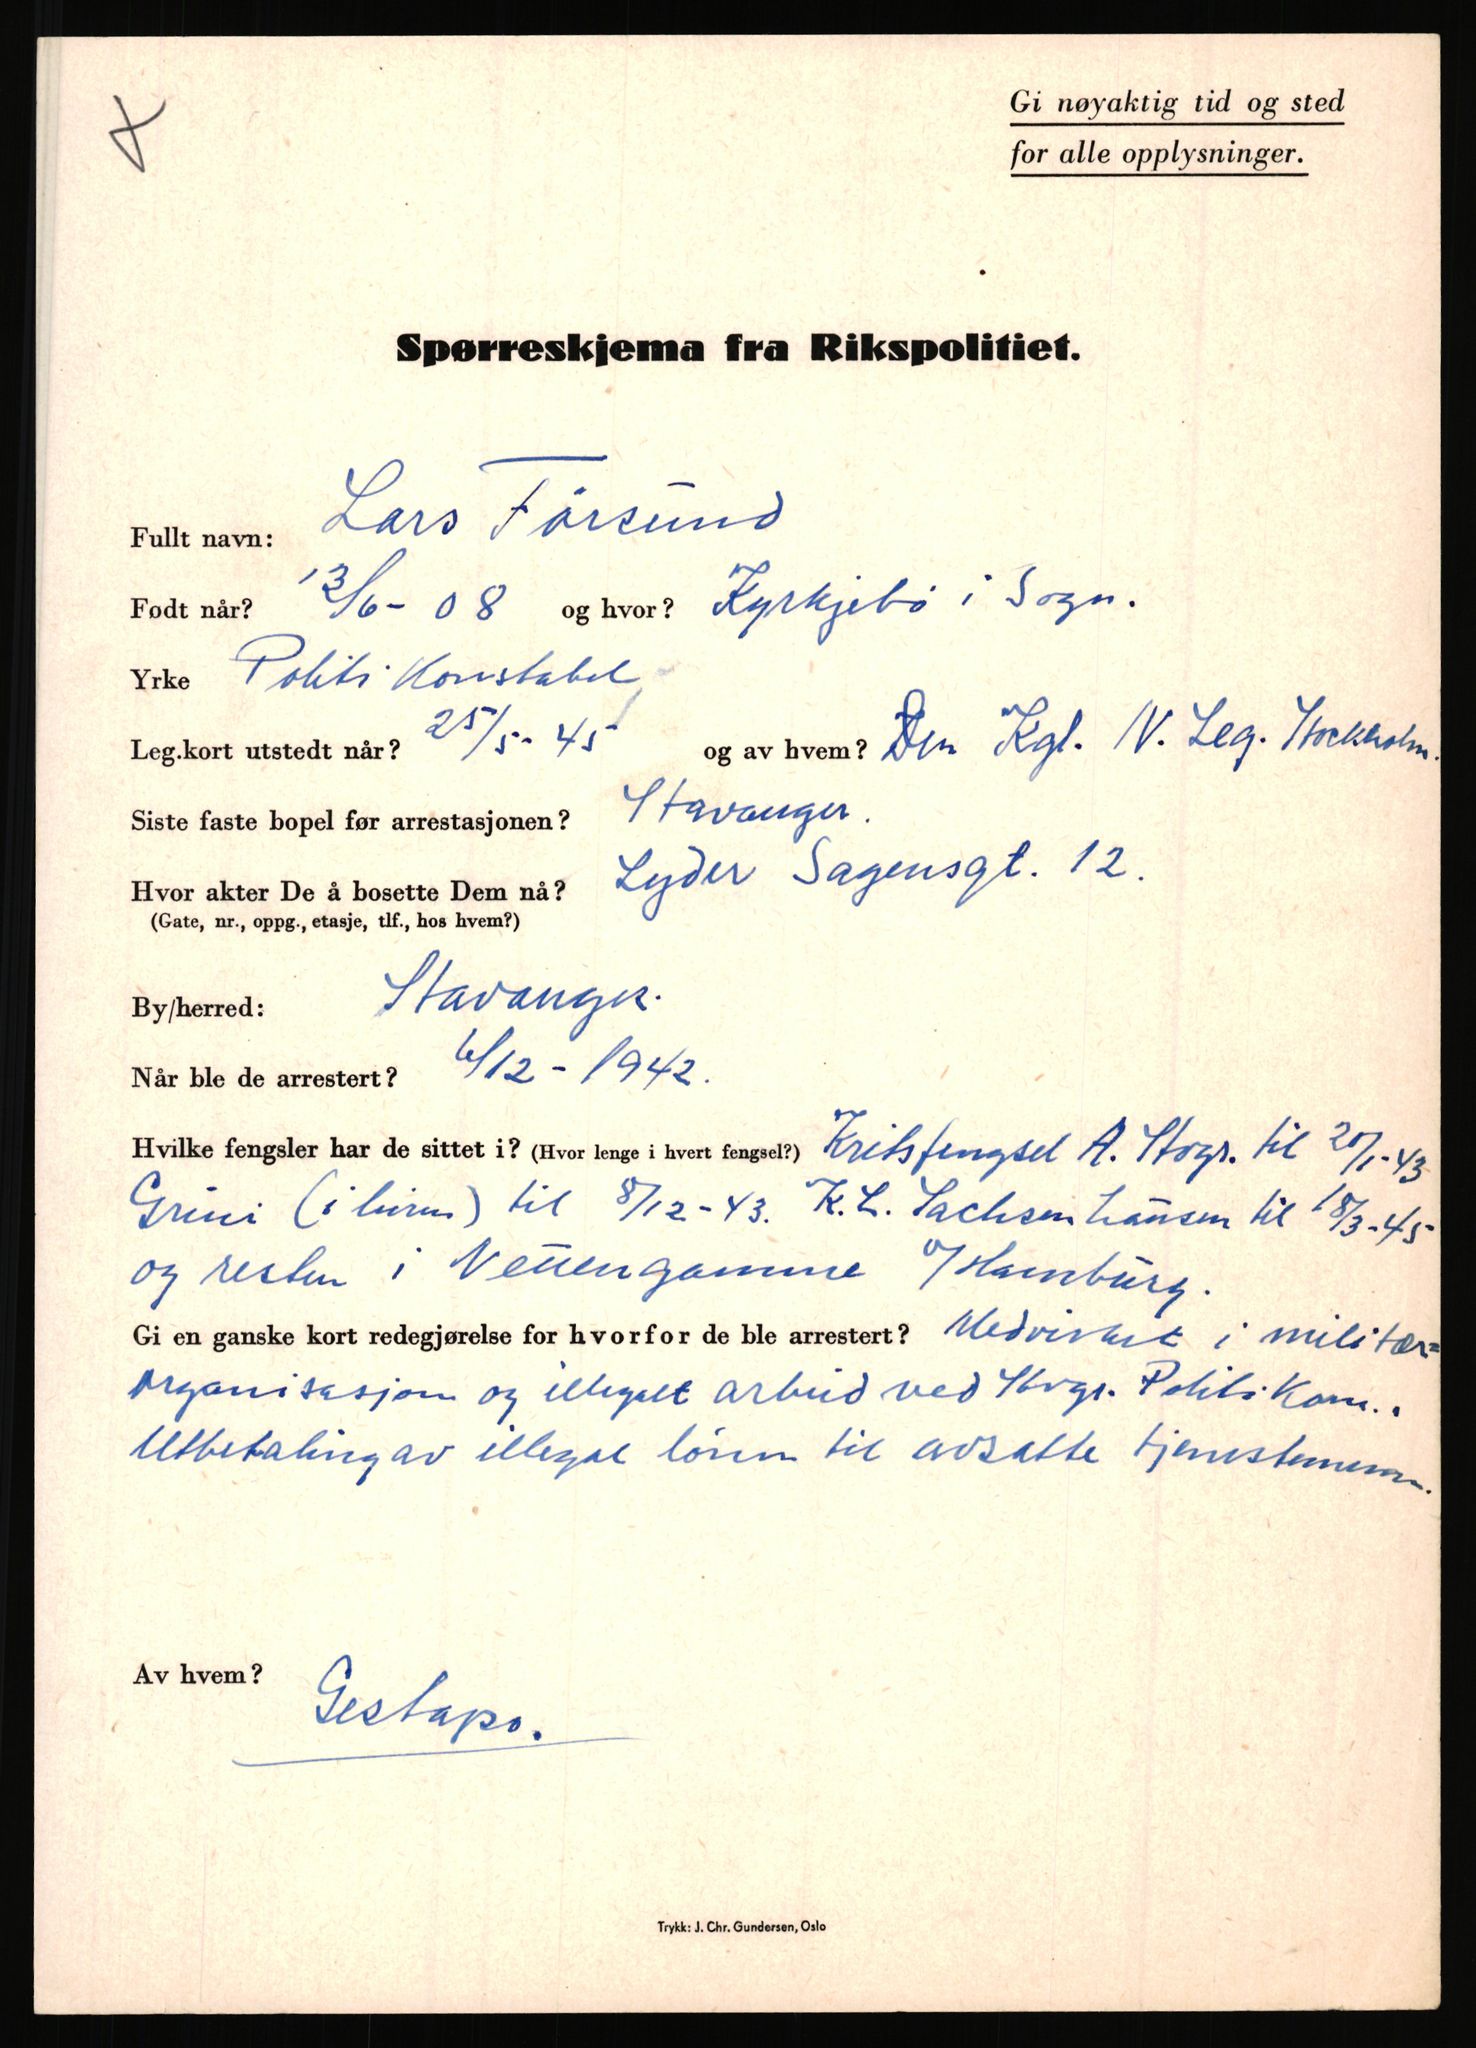 Gi nøyaktig tid og sted
for alle opplysninger.
Spørreskjema fra Rikspolitiet.
Fullt navn: Lars Førsund
Født når? 13/6 - 08 og hvor? Kyrkjebø i Sogn.
Yrke Politi Konstabel
Leg.kort utstedt når? 25/5 - 45 og av hvem? Den Kgl. N. Leg. Stockholm.
Siste faste bopel før arrestasjonen? Stavanger.
Hvor akter De å bosette Dem nå? Lyder Sagensgt. 12.
(Gate, nr., oppg., etasje, tlf., hos hvem?)
By/herred: Stavanger.
Når ble de arrestert? 6/12 - 1942.
Hvilke fengsler har de sittet i? (Hvor lenge i hvert fengsel?) Kretsfengsel A. Stvgr. til 20/1-43
Grini ( ) til 8/12 - 43. K. L. Sachsenhausen til 18/3-45
og resten i Neuengamme v/Hamburg.
Gi en ganske kort redegjørelse for hvorfor de ble arrestert? Medvirket i militær=
organisasjon og illegalt arbeid ved Stvgr. Politikam..
Utbetaling av illegal lønn til avsatte tjenestemenn.
Av hvem? Gestapo.
Trykk: J. Chr. Gundersen, Oslo